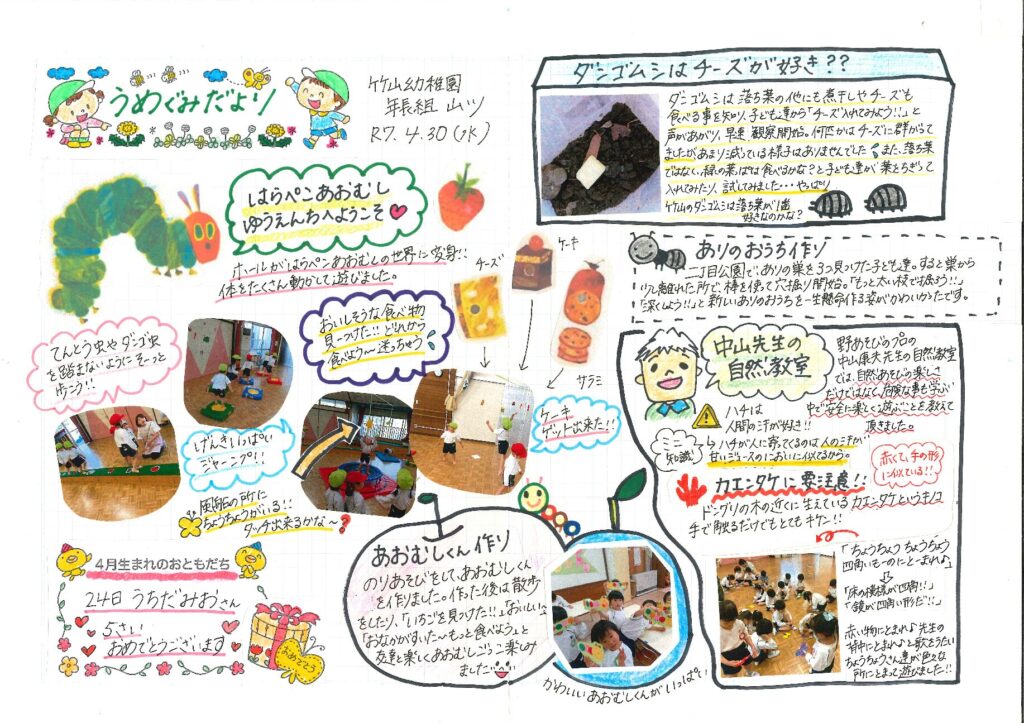 うめぐみだより
竹山幼稚園
年長組 山ツ
R7.4.30(水)
はらぺこあおむし
ゆうえんちへようこそ
ホールがはらぺこあおむしの世界に変身!!
体をたくさん動かして遊びました。
てんとう虫やダンゴ虫
を踏まないようにそーっと
歩こう!!
おいしそうな食べ物
見ーつけた!! どれから
食べよう〜迷っちゃう
チーズ
ケーキ
サラミ
げんきいっぱい
ジャーンプ!!
ケーキ
ゲット出来た!!
の所に
ちょうちょうがいる!!
タッチ出来るかな〜?
4月生まれのおともだち
24日 うちだみおさん
5さい
おめでとうございます
おめでとう
あおむしくん作り
のりあそびをして、あおむしくん
を作りました。作った後は散歩
をしたり、「いちごを見つけた!!」「おいしい〜」
「おなかがすいた〜もっと食べよう」と
友達と楽しくあおむしごっこ楽しみ
ました
かわいいあおむしくんがいっぱい
ダンゴムシはチーズが好き??
ダンゴムシは落ち葉の他にも煮干しやチーズも
食べる事を知り、子ども達から「チーズ入れてみよう!!」と
声があがり、早速、観察開始。何匹かはチーズに群がって
ましたが、あまり減っている様子はありませんでした また、落ち葉
ではなく、緑の葉っぱは食べるかな?と子ども達が葉をちぎって
入れてみたり、試してみました・・・やっぱり
竹山のダンゴムシは落ち葉が1番
好きなのかな?
ありのおうち作り
二丁目公園で、ありの巣を3つ見つけた子ども達。すると巣から
少し離れた所で、棒を使って穴掘り開始。「もっと太い枝で掘ろう!!」
「深くしよう!!」と新しいありのおうちを一生懸命作る姿がかわいかったです。
中山先生の
自然教室
野あそびのプロの
中山康夫先生の自然教室
では、自然あそびの楽しさ
だけではなく、危険な事も学ぶ
中で安全に楽しく遊ぶことを教えて
頂きました。
ハチは
人間の汗が好き!!
ミニ
知識
ハチが人に寄ってくるのは人の汗が
甘いジュースのにおいに似てるから。
赤くて、手の形
に似ている!!
カエンタケに要注意!!
ドングリの木の近くに生えているカエンタケというキノコは
手で触るだけでもとてもキケン!!
「ちょうちょう ちょうちょう
四角いものにとーまれ♪」
「床の模様が四角!!」
「鏡が四角い形だ!!」
赤い物にとまれ♪先生の
背中にとまれ♪と歌をうたい
ちょうちょうさん達が色々な
所にとまって遊びました!!